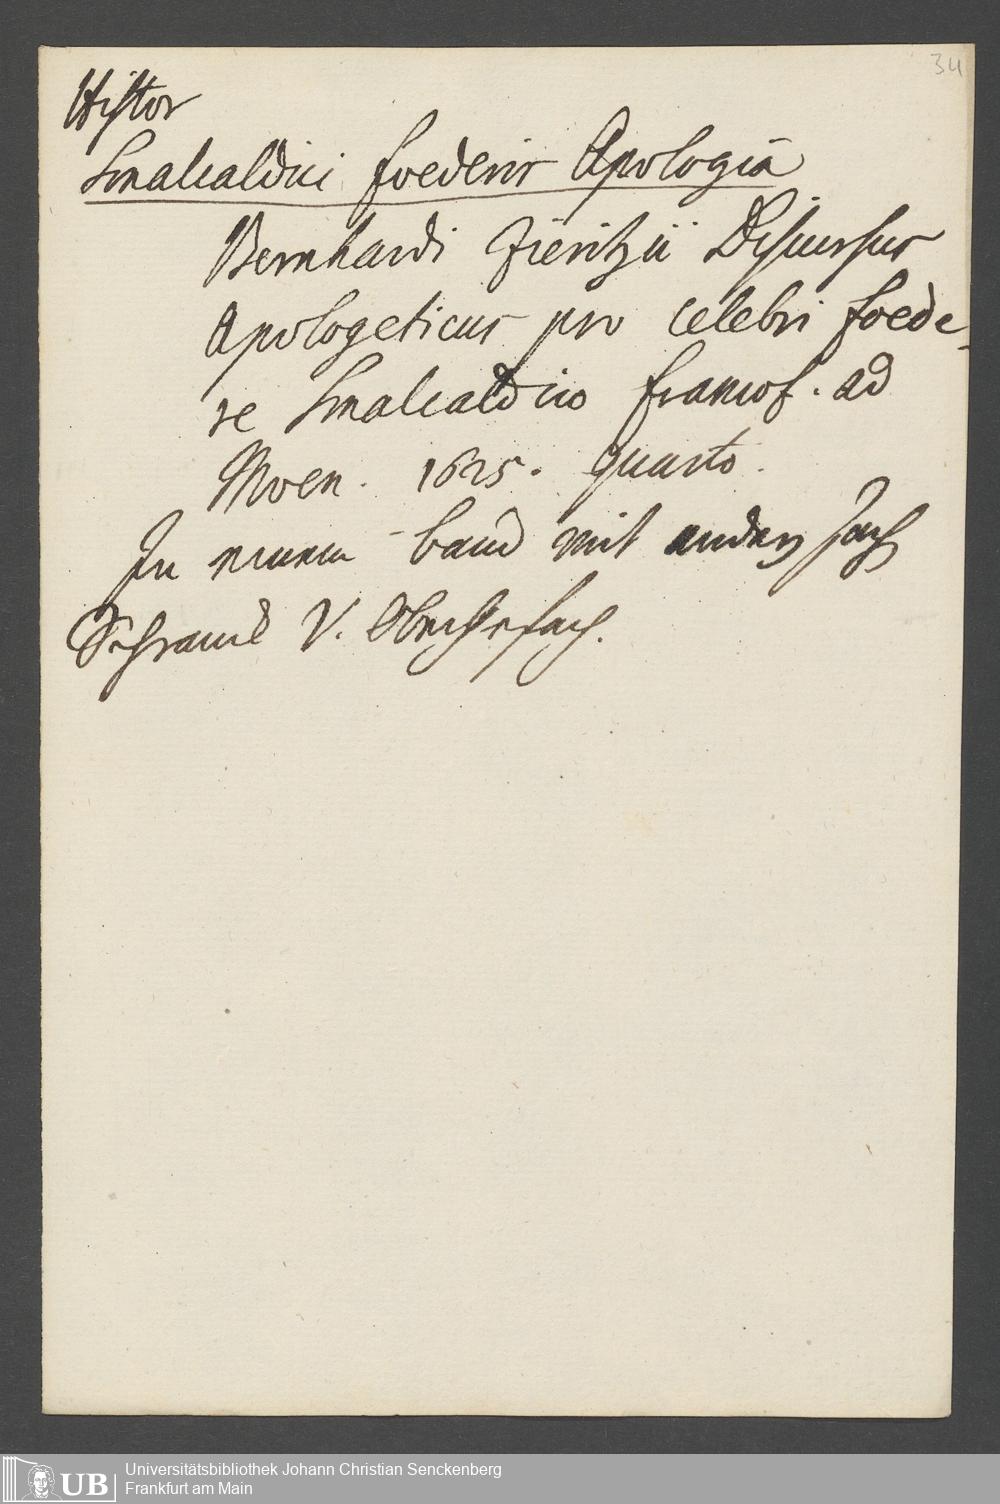 34
Histor
Smalcaldici foederis Apologia
Bernhardi Zieritzii Discursus
Apologeticus pro celebri foede-
re Smalcaldico francof. ad
Moen. 1625. quarto.
In einem band mit andern
Schranck V. Oberstes fach.
UB
Universitätsbibliothek Johann Christian Senckenberg
Frankfurt am Main